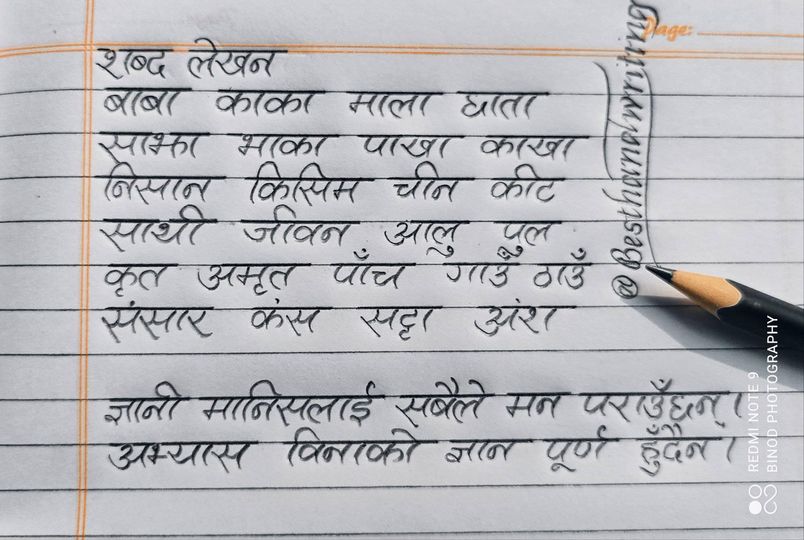 शब्द लेखन
बाबा काका माला छाता
साझा भाका पाखा काखा
निसान किसिम चीन कीट
साथी जीवन आलु पुल
कृत अमृत पाँच गाउँ ठाउँ
संसार कंस सट्टा अंश
ज्ञानी मानिसलाई सबैले मन पराउँछन् ।
अभ्यास विनाको ज्ञान पूर्ण हुँदैन ।
Page:
@Besthandwriting
REDMI NOTE 9
BINOD PHOTOGRAPHY